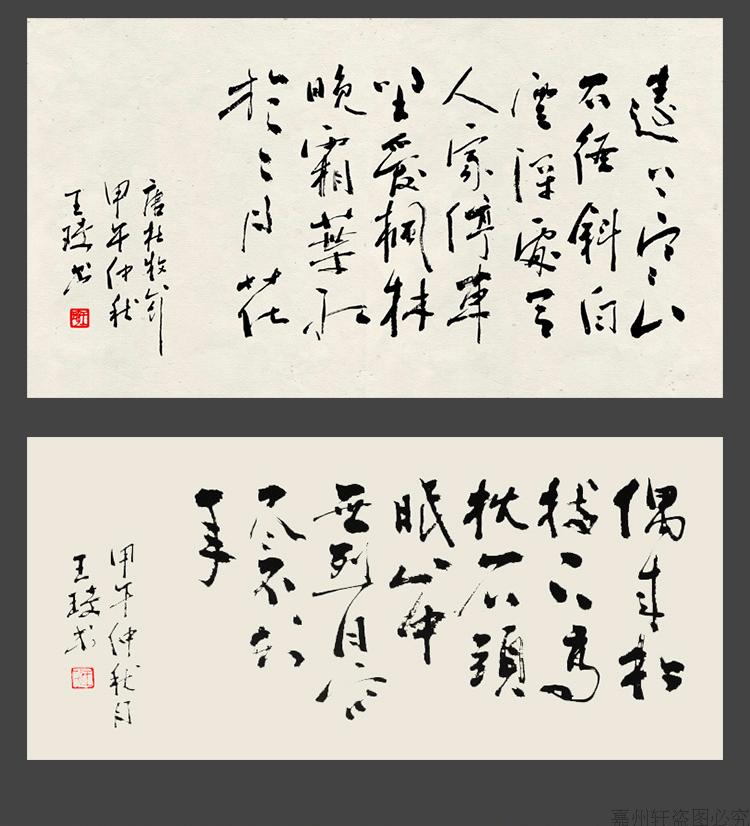 遠上寒山
石徑斜白
雲深處有
人家停車
坐愛楓林
晚霜葉紅
於二月花
唐杜牧詩
甲午仲秋
王
偶來松
樹下高
枕石頭
眠山中
無日寒
尽不知
年
甲午仲秋月
王
嘉州轩盗图必究